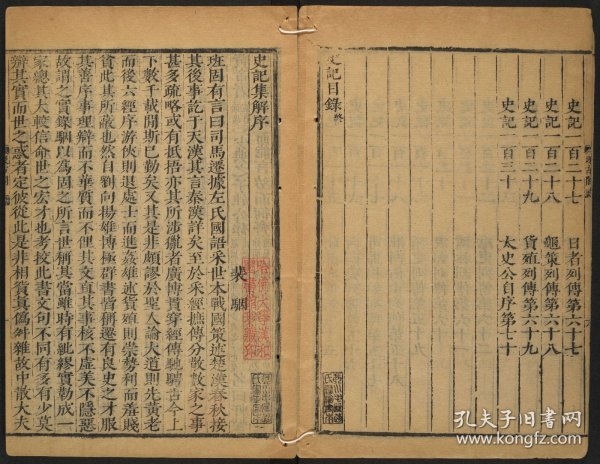 史記一百二十七 日者列傳第六十七
史記一百二十八 龜策列傳第六十八
史記一百二十九 貨殖列傳第六十九
史記一百三十 太史公自序第七十
史記目錄終
史記集解序
裴駰
班固有言曰司馬遷據左氏國語采世本戰國策述楚漢春秋接
其後事訖于天漢其言秦漢詳矣至於采經摭傳分散數家之事
甚多疏略或有抵捂亦其所涉獵者廣博貫穿經傳馳騁古今上
下數千載閒斯已勤矣又其是非頗謬於聖人論大道則先黃老
而後六經序游俠則退處士而進姦雄述貨殖則崇勢利而羞賤
貧此其所蔽也然自劉向揚雄博極群書皆稱遷有良史之才服
其善序事理辯而不華質而不俚其文直其事核不虛美不隱惡
故謂之實錄駰以為固之所言世稱其當雖時有紕繆實勒成一
家總其大較信命世之宏才也考挍此書文句不同有多有少莫
辯其實而世之惑者定彼從此是非相貿真偽舛雜故中散大夫
孔夫子旧书网
www.kongfz.com